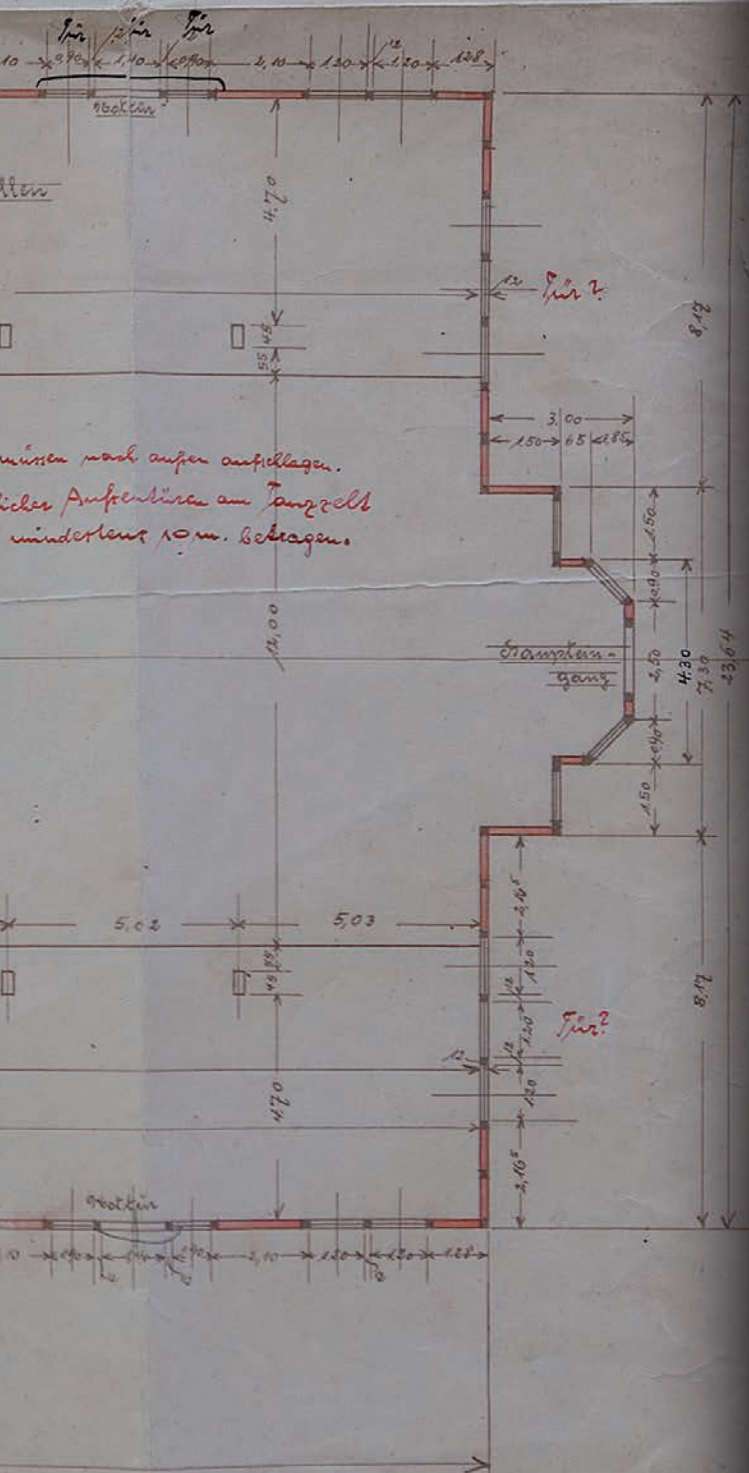 Tür Tür Tür
10 0,90 12 1,40 0,90 2,10 1.20 12 1.20 1.28
Nottür
4,70
12
Tür?
8,17
45
55
3.00
1.50 65 0,85
müssen nach außen aufschlagen.
licher Außentüren am Tanzzelt
mindestens 10 m. betragen.
1.50
0,90
12,00
Haupteingang
2,50
4.30
7,30
23,64
0,90
1.50
5,02 5,03
2,16⁵
55
45
1.20
12
1.20
Tür?
8,17
12
12
1.20
4,70
2,16⁵
Nottür
10 0,90 1,40 0,90 2,10 1.20 1.20 1.28